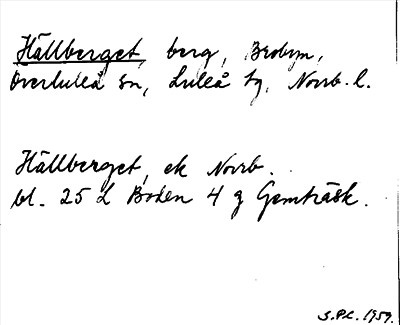 Hällberget, berg, Brobyn,
Överluleå sn, Luleå tg, Norrb. l.
Hällberget, ek Norrb.
bl. 25 L Boden 4 g Gemträsk.
S.P.L. 1959.